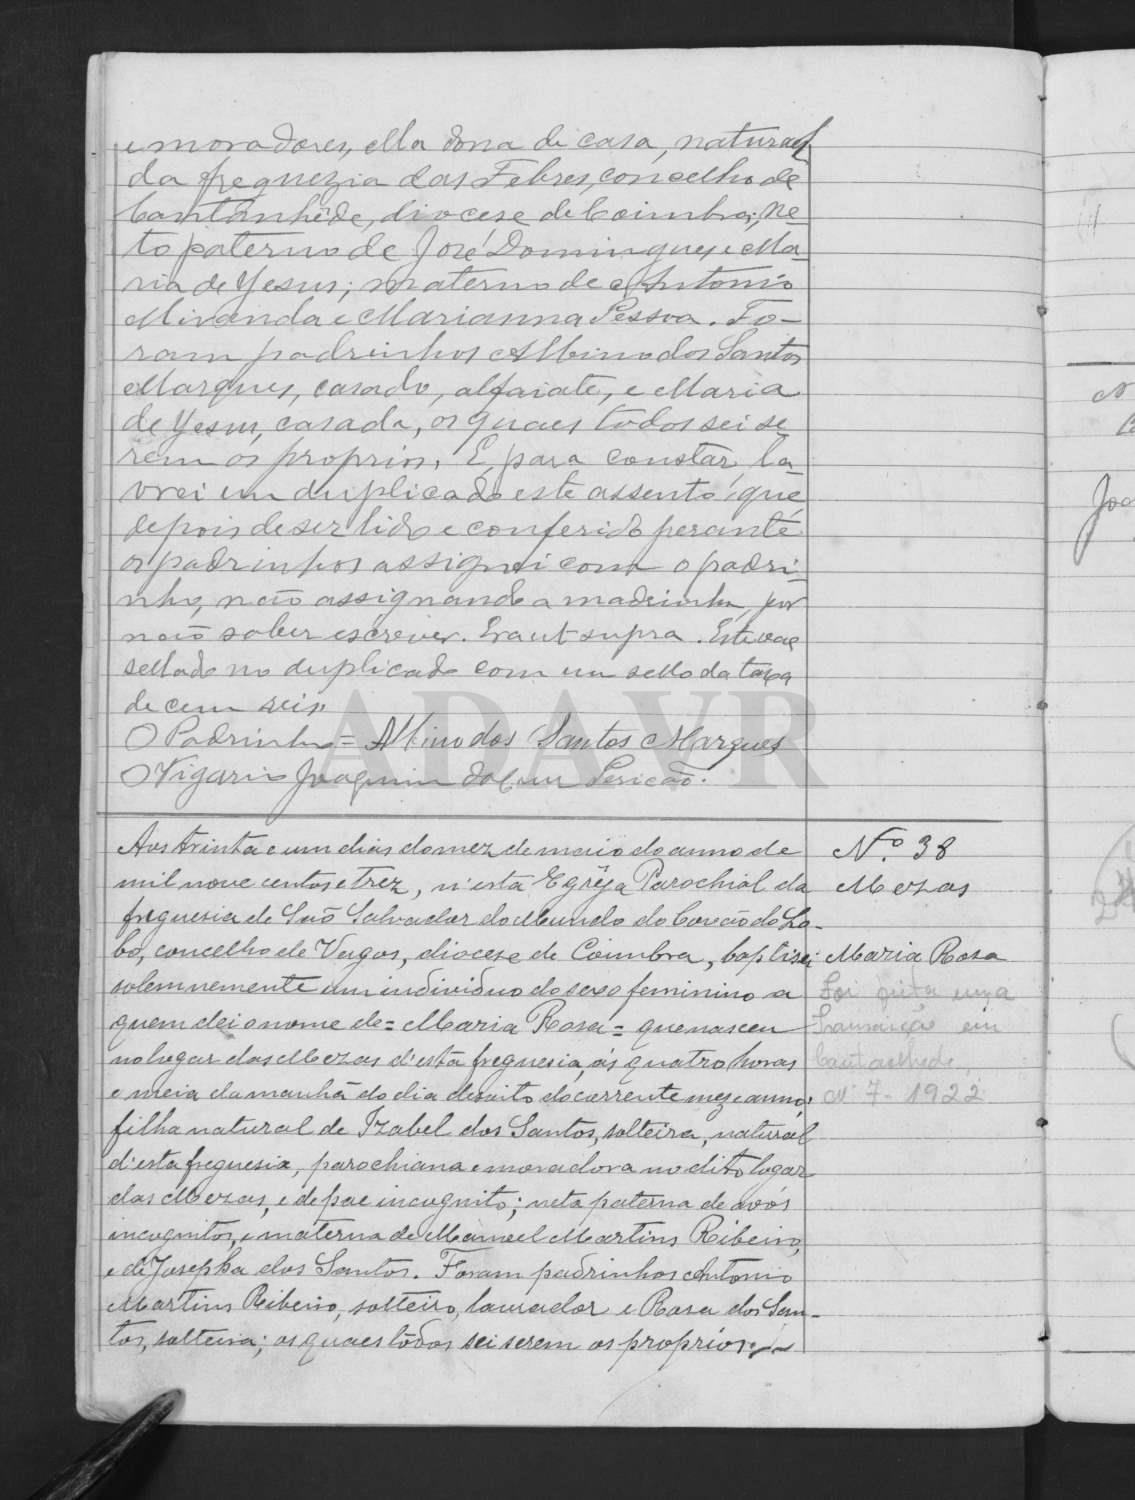 e moradores, ella dona de casa, natural
da freguezia das Febres, concelho de
Cantanhêde, diocese de Coimbra; ne-
to paterno de José Domingues e Ma-
ria de Yesus; materno de Antonio
Miranda e Marianna Pessoa. Fo-
ram padrinhos Albino dos Santos
Marques, casado, alfaiate, e Maria
de Yesus, casada, os quaes todos sei se-
rem os proprios. E para constar la-
vrei em duplicado este assento, que
depois de ser lido e conferido perante
os padrinhos assignei com o padri-
nho, não assignando a madrinha, por
não saber escrever. Era ut supra. Este vae
sellado no duplicado com um sello da taxa
de cem reis.
O Padrinho = Albino dos Santos Marques
O Vigario Joaquim
ADAVR
Aos trinta e um dias do mez de maio do anno de
mil nove centos e trez, n'esta Egreja Parochial da
freguesia de São Salvador do Mundo do Covão do Lo-
bo, concelho de Vagos, diocese de Coimbra, baptisei
solemnemente um individuo do sexo feminino a
quem dei o nome de = Maria Rosa = que nasceu
no logar das Mezas d'esta freguesia, ás quatro horas
e meia da manhã do dia desoito do corrente mez e anno;
filha natural de Izabel dos Santos, solteira, natural
d'esta freguesia, parochiana e moradora no dito logar
das Mezas, e de pae incognito; neta paterna de avós
incognitos, e materna de Manuel Martins Ribeiro,
e de Josepha dos Santos. Foram padrinhos Antonio
Martins Ribeiro, solteiro, lavrador e Rosa dos San-
tos, solteira; os quaes todos sei serem os proprios.
N.º 38
Mezas
Maria Rosa
Foi feita uma
em
Cantanhede,
7 - 1922